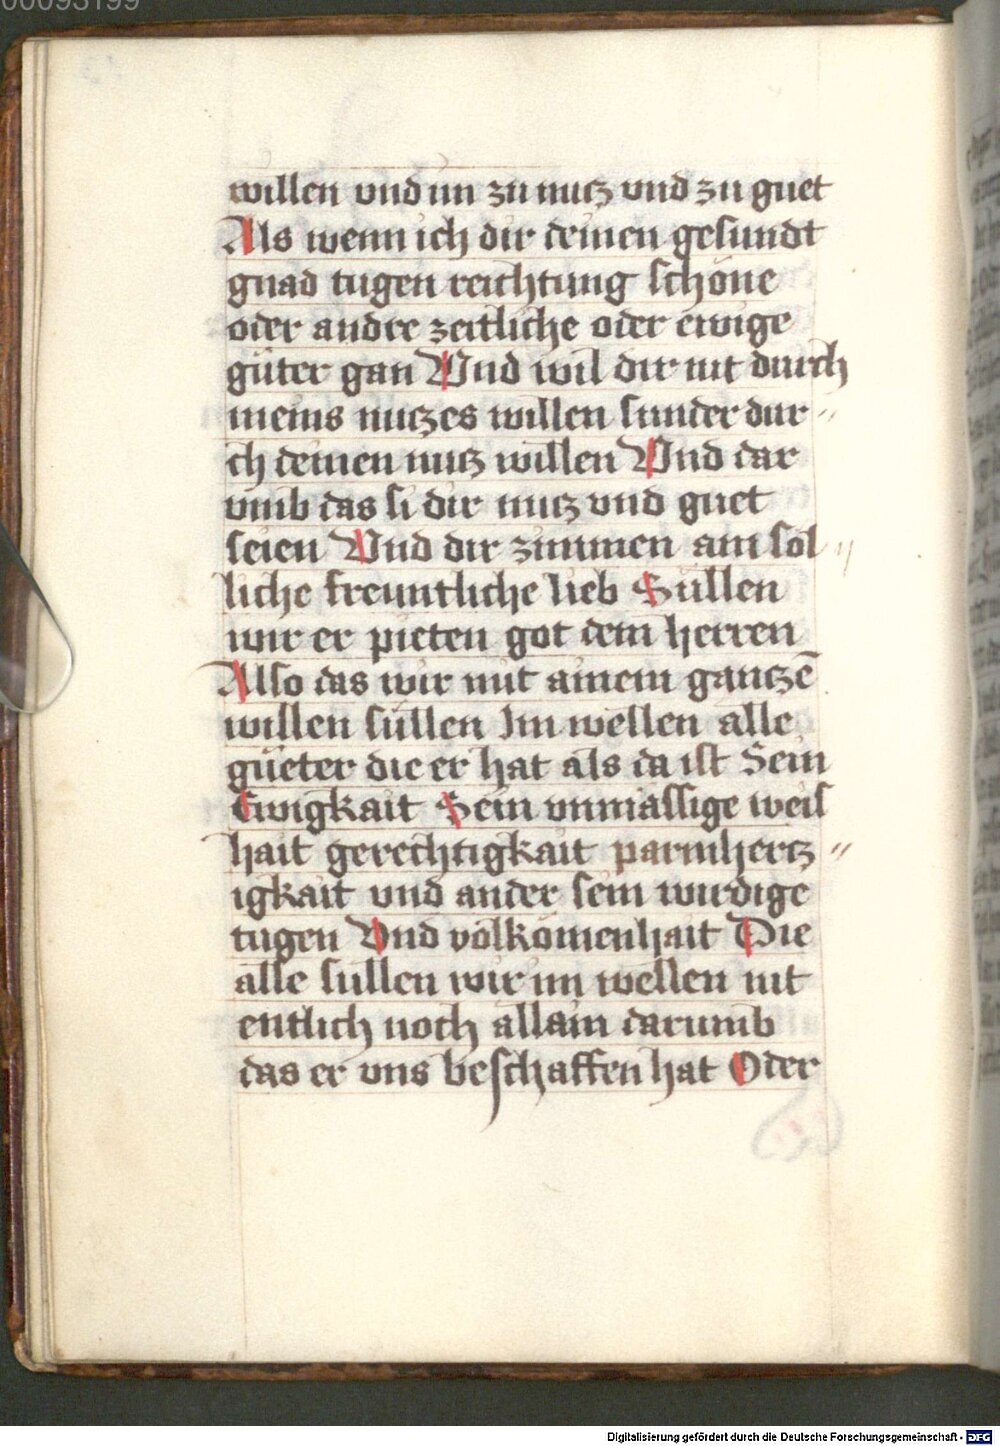 00093199
willen vnd im zu nucz vnd zu guet
Als wenn ich dir deinen gesundt
gnad tugen reichtung schöne
oder andre zeitliche oder ewige
güter gan Vnd wil dir nit durch
meins nuczes willen sunder dur〃
ch deinen nucz willen Vnd dar
vmb das si dir nucz vnd guet
seien Vnd dir zimmen am söl〃
liche freuntliche lieb Süllen
wir er pieten got dem herren
Also das wir mit ainem ganczē
willen süllen Im wellen alle
güeter die er hat als da ist Sein
Ewigkait Sein vnmassige weis
hait gerechtigkait parmhercz〃
igkait vnd ander sein wirdige
tugen Vnd volkömenhait Die
alle sullen wir im wellen nit
entlich noch allain darumb
das er vns beschaffen hat Oder
Digitalisierung gefördert durch die Deutsche Forschungsgemeinschaft - DFG